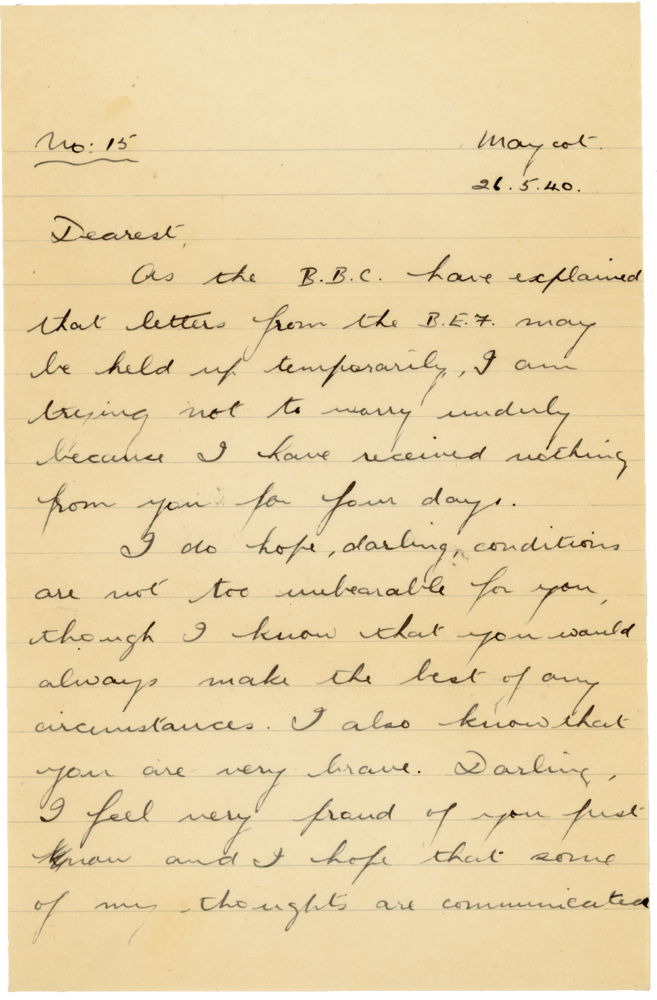 No: 15
Maycot.
26.5.40.
Dearest,
As the B.B.C. have explained
that letters from the B.E.F. may
be held up temporarily, I am
trying not to worry underly
because I have received nothing
from you for four days.
I do hope, darling, conditions
are not too unbearable for you,
though I know that you would
always make the best of any
circumstances. I also know that
you are very brave. Darling,
I feel very proud of you just
now and I hope that some
of my thoughts are communicated